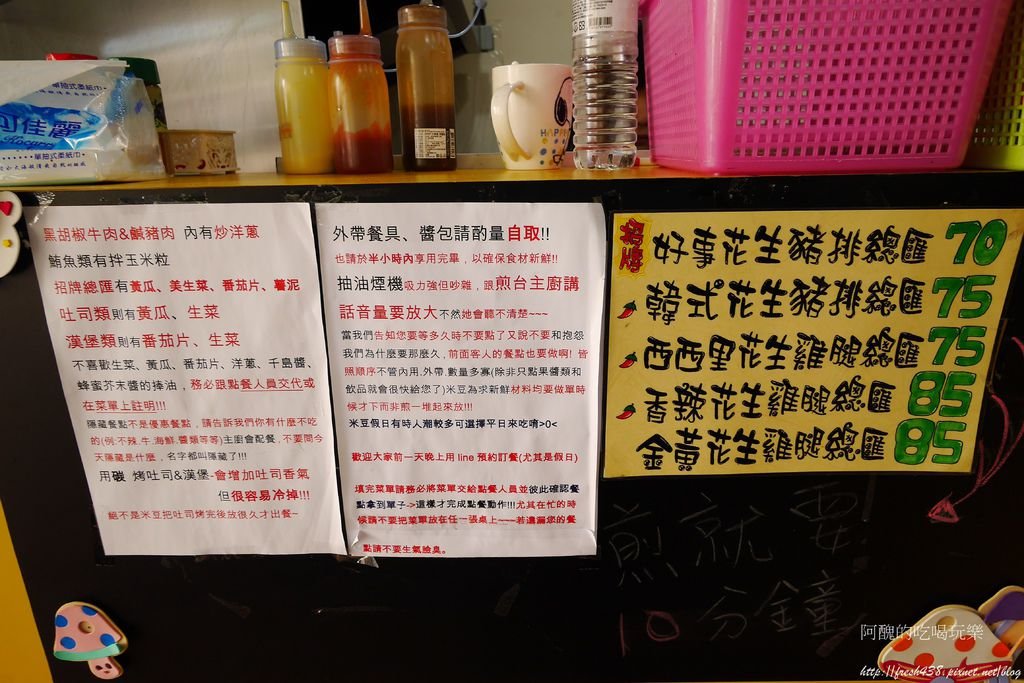 可佳麗
單抽式柔紙巾
HAPPY
黑胡椒牛肉&鹹豬肉 內有炒洋蔥
鮪魚類有拌玉米粒
招牌總匯有黃瓜、美生菜、番茄片、薯泥
吐司類則有黃瓜、生菜
漢堡類則有番茄片、生菜
不喜歡生菜、黃瓜、番茄片、洋蔥、千島醬、
蜂蜜芥末醬的捧油，務必跟點餐人員交代或
在菜單上註明!!!
隱藏餐點不是優惠餐點，請告訴我們你有什麼不吃
的(例:不辣.牛.海鮮.醬類等等)主廚會配餐，不要問今
天隱藏是什麼，名字都叫隱藏了!!!
用碳 烤吐司&漢堡-會增加吐司香氣
但很容易冷掉!!!
絕不是米豆把吐司烤完後放很久才出餐~
外帶餐具、醬包請酌量自取!!
也請於半小時內享用完畢，以確保食材新鮮!!
抽油煙機吸力強但吵雜，跟煎台主廚講
話音量要放大不然她會聽不清楚~~~
當我們告知您要等多久時不要點了又說不要和抱怨
我們為什麼要那麼久，前面客人的餐點也要做啊! 皆
照順序不管內用.外帶.數量多寡(除非只點果醬類和
飲品就會很快給您了)米豆為求新鮮材料均要做單時
候才下而非煎一堆起來放!!!
米豆假日有時人潮較多可選擇平日來吃唷>0<
歡迎大家前一天晚上用 line 預約訂餐(尤其是假日)
填完菜單請務必將菜單交給點餐人員並彼此確認餐
點拿到單子->這樣才完成點餐動作!!!尤其在忙的時
候請不要把菜單放在任一張桌上~~~若遺漏您的餐
點請不要生氣臉臭。
招牌 好事花生豬排總匯 70
韓式花生豬排總匯 75
西西里花生雞腿總匯 75
香辣花生雞腿總匯 85
金黃花生雞腿總匯 85
煎就要
10分鐘
阿醜的吃喝玩樂
http://fresh438.pixnet.net/blog